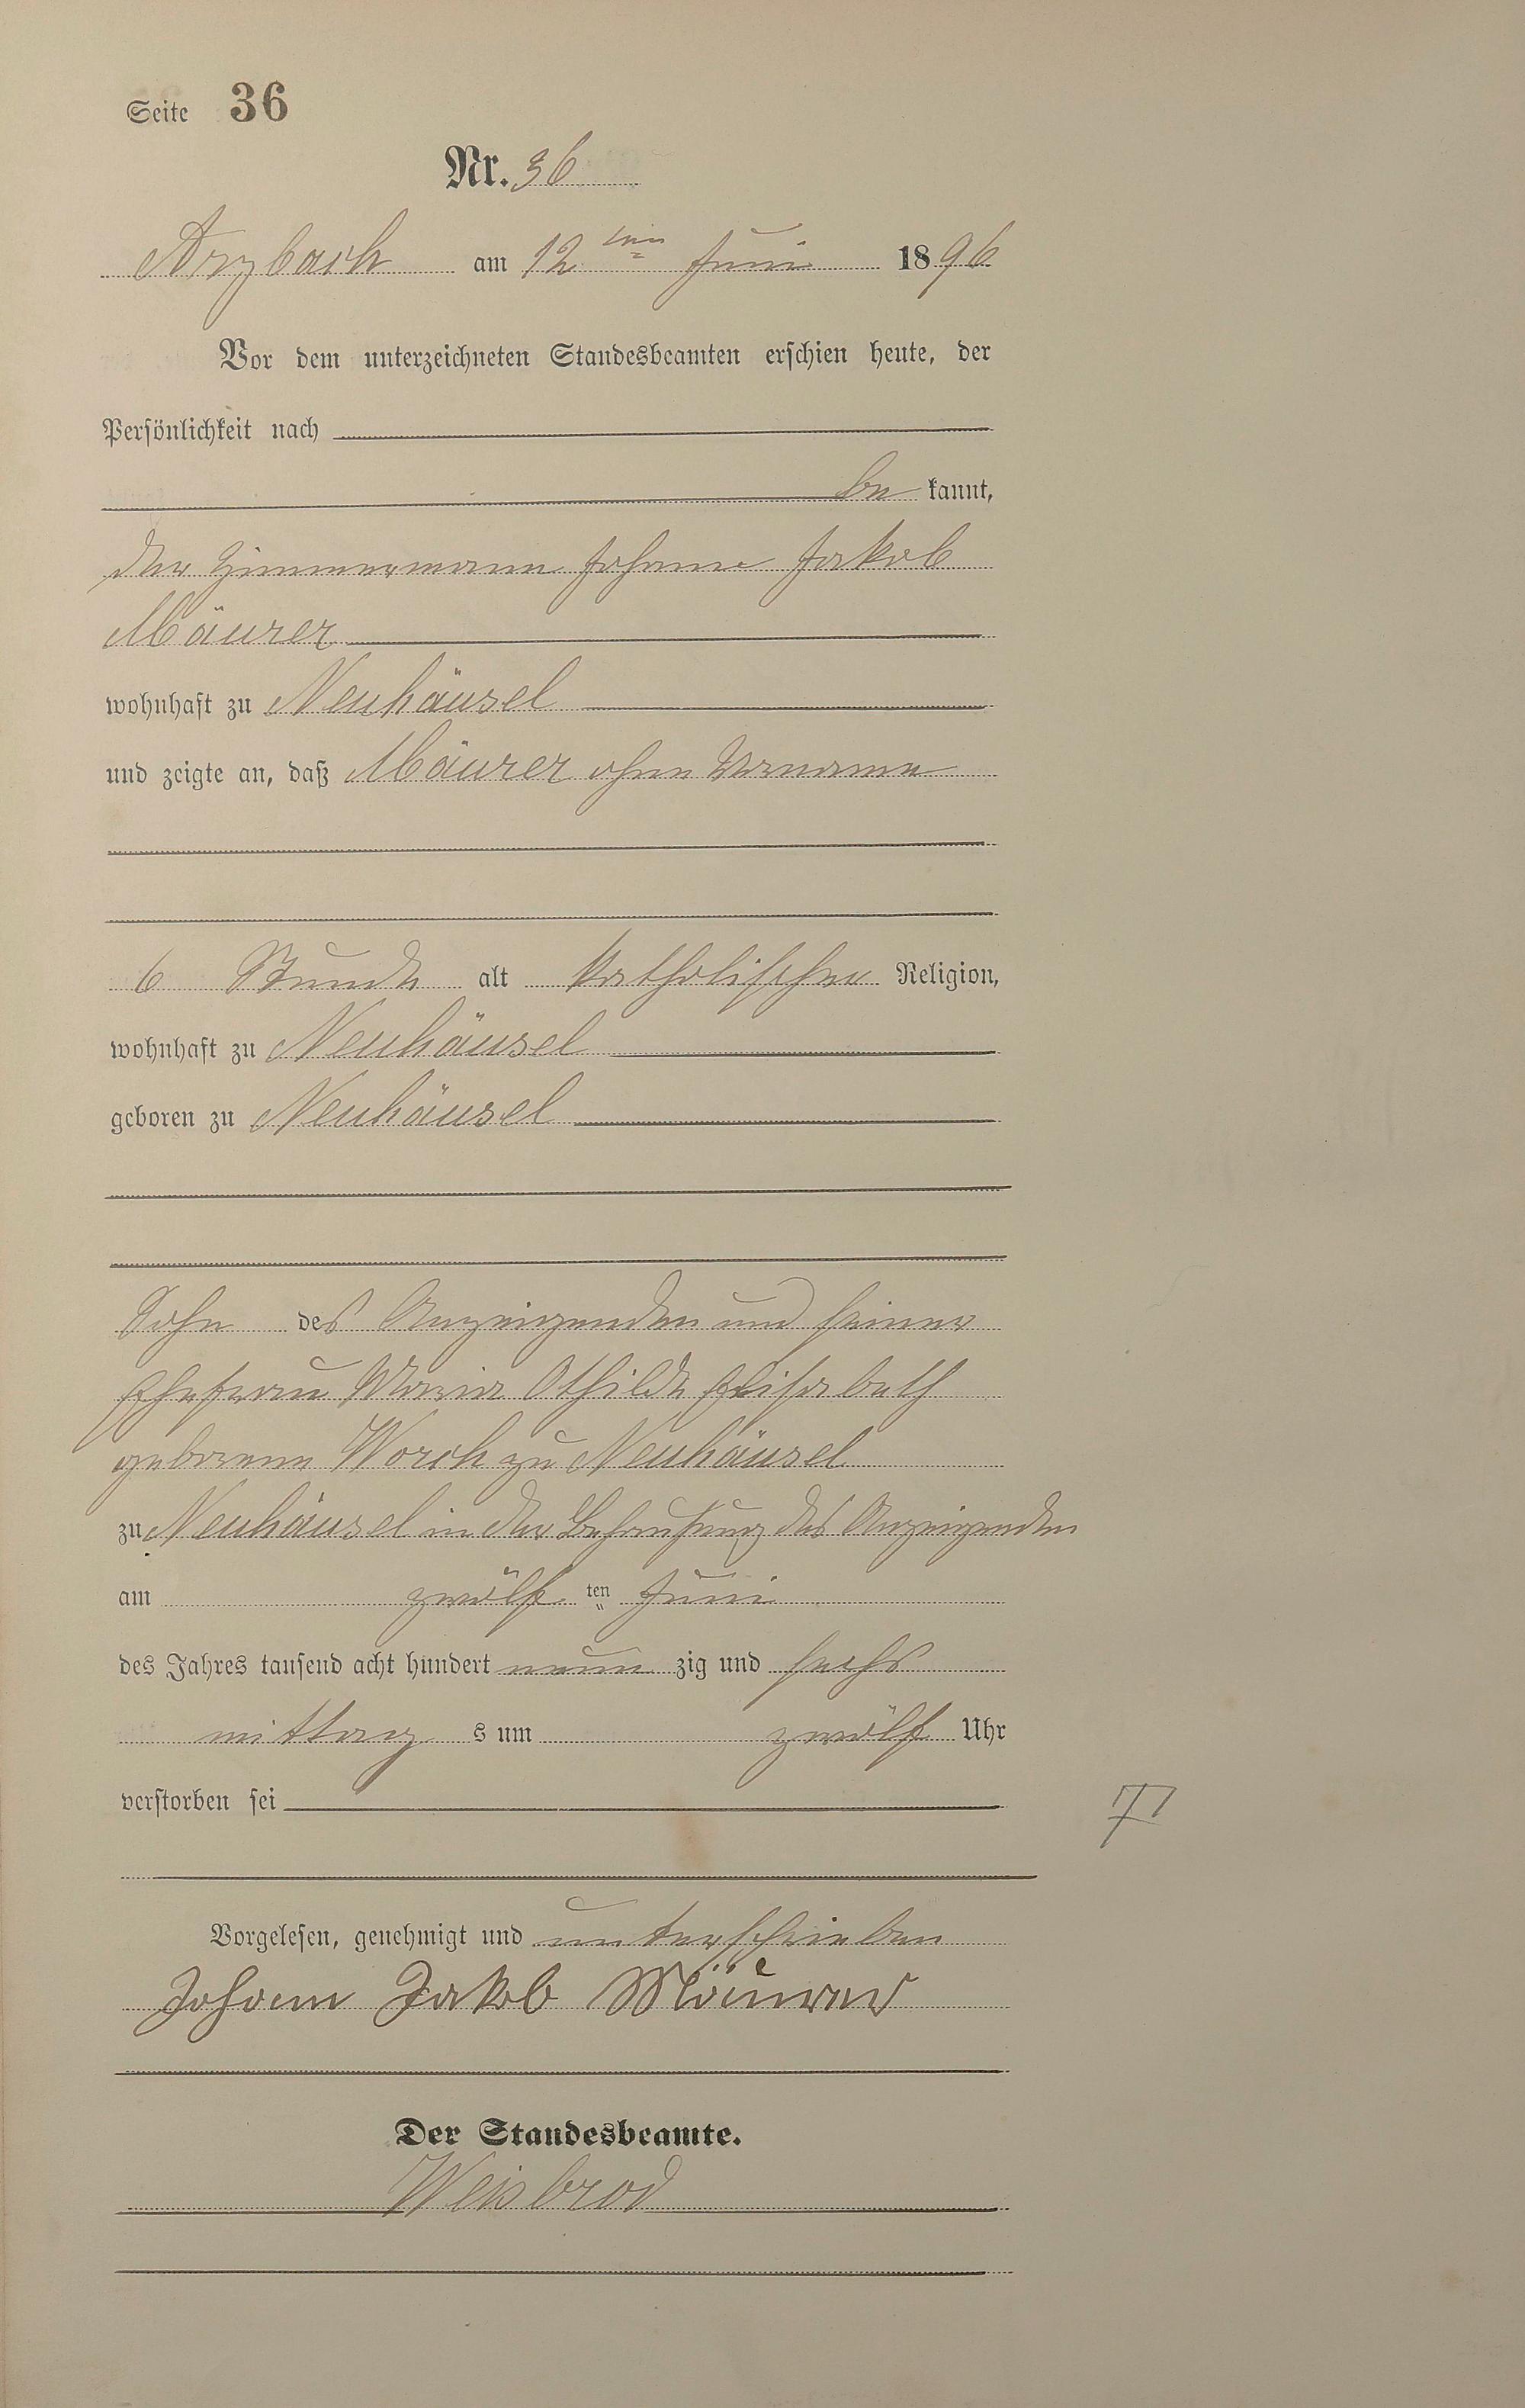 Seite 36
Nr. 36
Arzbach am 12ten Juni 1896
Vor dem unterzeichneten Standesbeamten erschien heute, der
Persönlichkeit nach
be kannt,
der Zimmermann Johann Jakob
Mäurer
wohnhaft zu Neuhäusel
und zeigte an, daß Mäurer ohne Vorname
6 Stunde alt katholischer Religion,
wohnhaft zu Neuhäusel
geboren zu Neuhäusel
Sohn des Anzeigenden und seiner
Ehefrau Maria Othilde Elisabeth
geborene Worch zu Neuhäusel
zu Neuhäusel in der Behausung des Anzeigenden
am zwölf ten Juni
des Jahres tausend acht hundert neun zig und sechs
mittag s um zwölf Uhr
verstorben sei
Vorgelesen, genehmigt und unterschrieben
Johann Jakob Mäurer
Der Standesbeamte.
Weisbrod